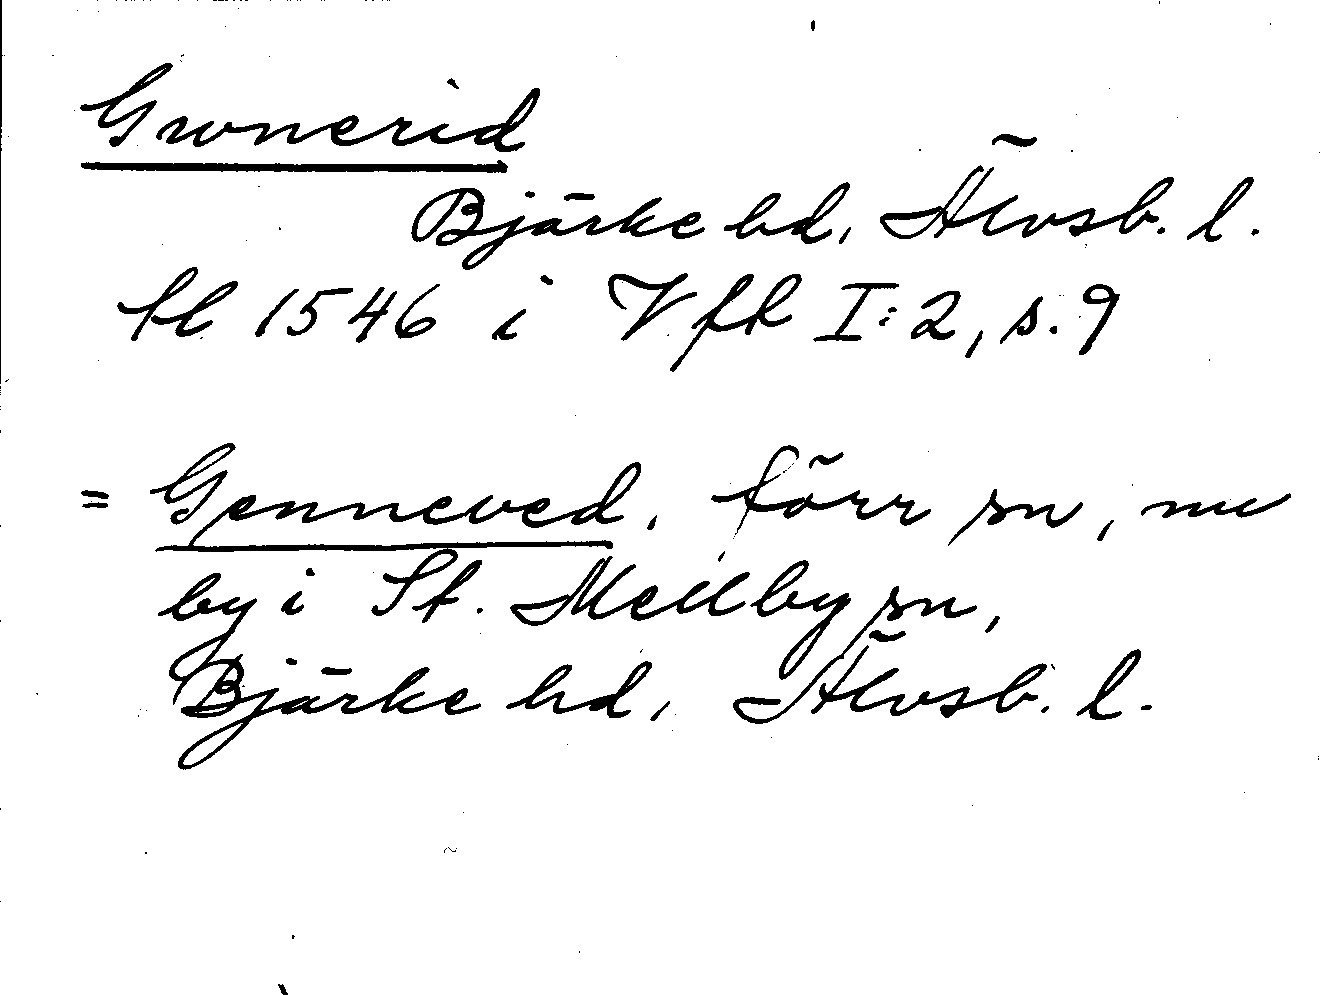 Gwnerid
Bjärke hd, Älvsb. l.
sl 1546 i Vfh I:2, s. 9
= Genneved, förr sn, nu
by i St. Mellby sn,
Bjärke hd, Älvsb. l.